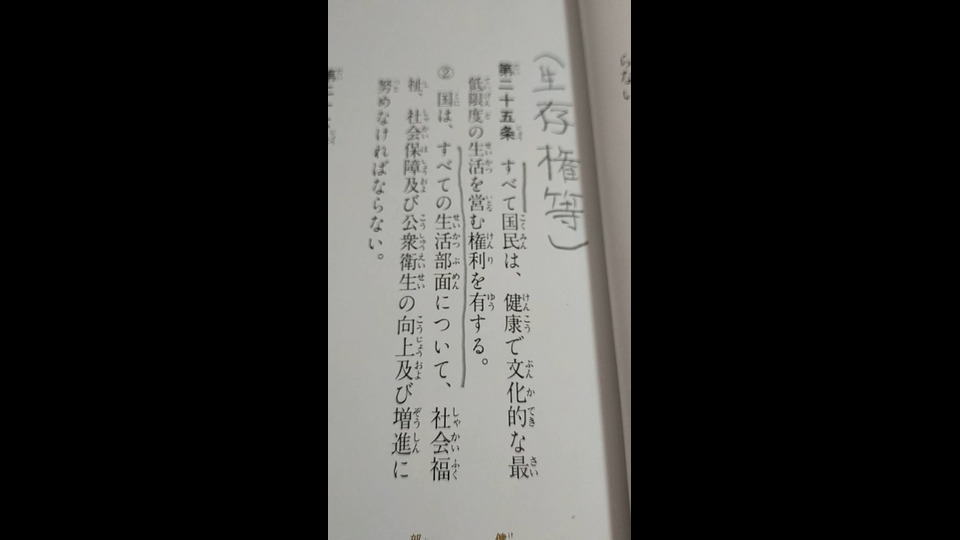 らない
(生存権等)
第二十五条 すべて国民は、健康で文化的な最
低限度の生活を営む権利を有する。
② 国は、すべての生活部面について、社会福
祉、社会保障及び公衆衛生の向上及び増進に
努めなければならない。